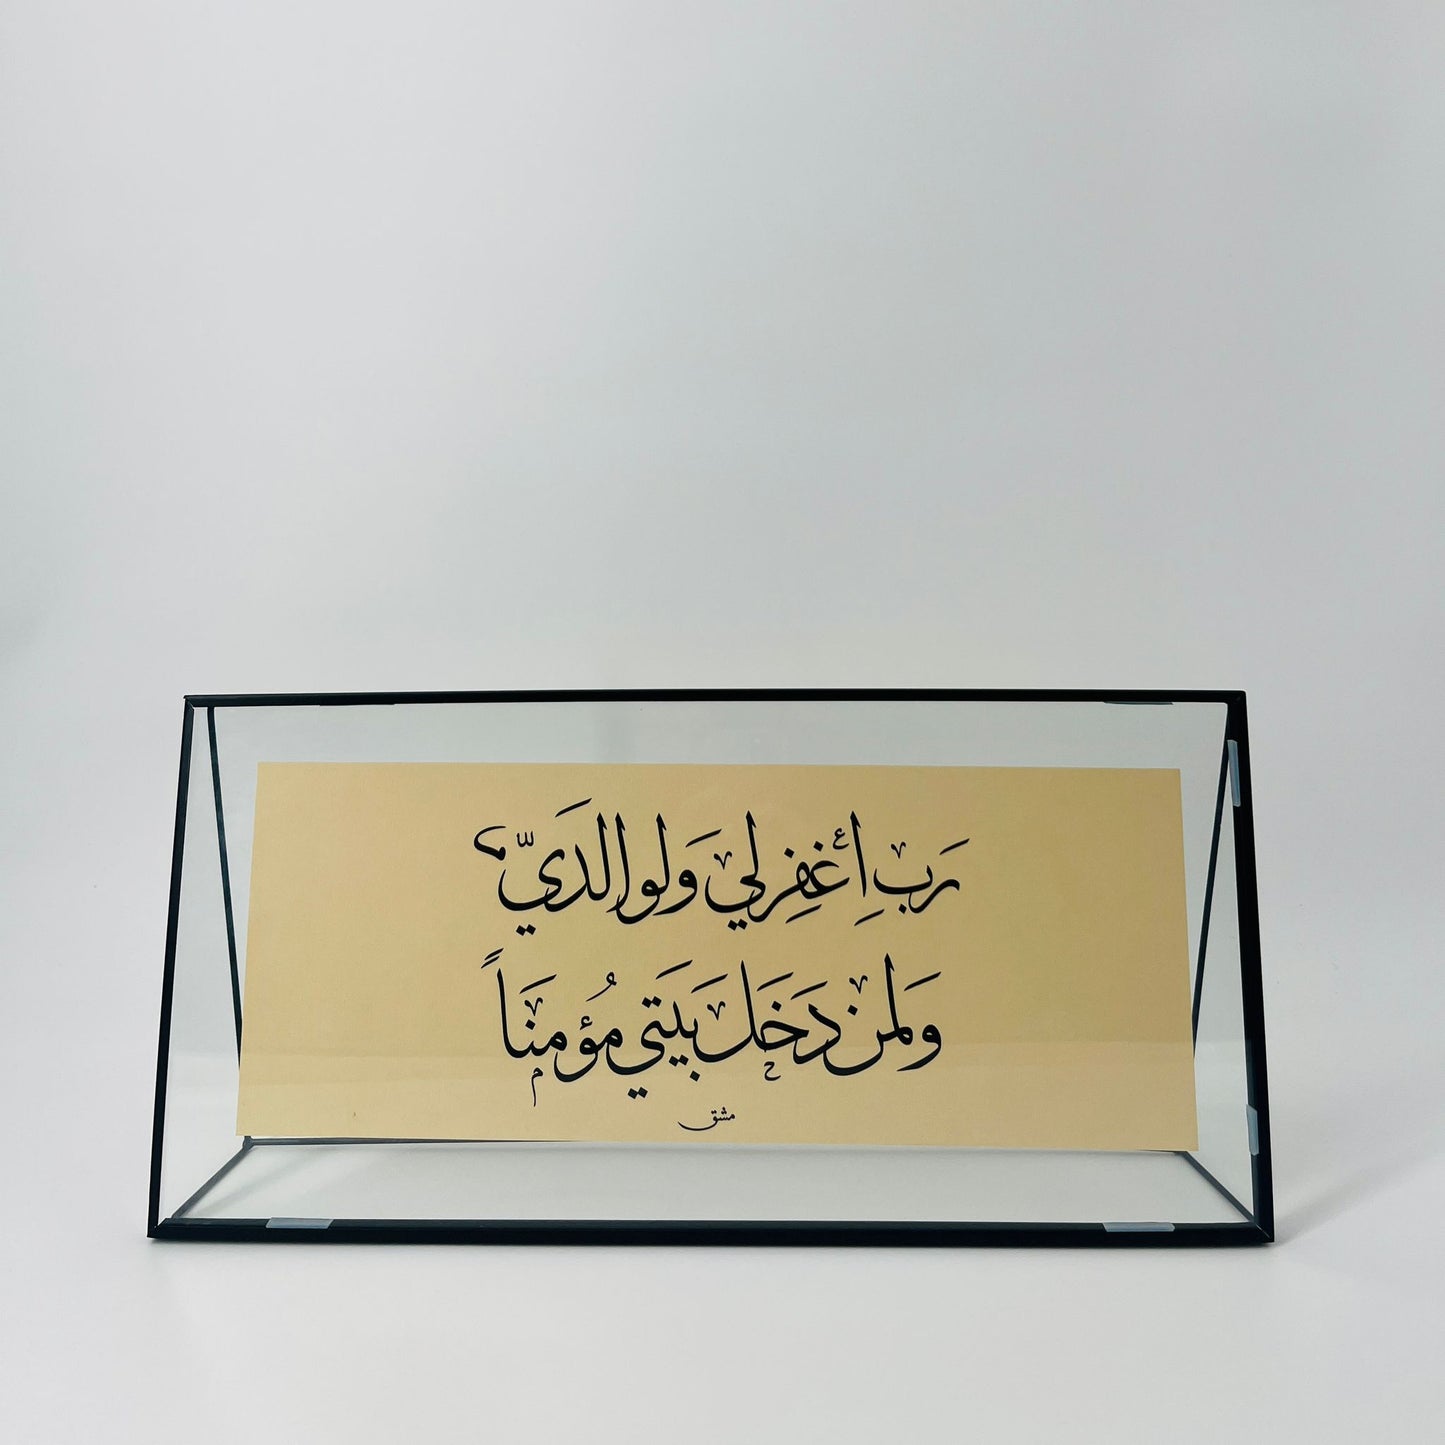 رَبِ اِغْفِرلي وَلوالدَيّ
وَلمن دَخَل بَيَتي مُؤمنَاً
مشق